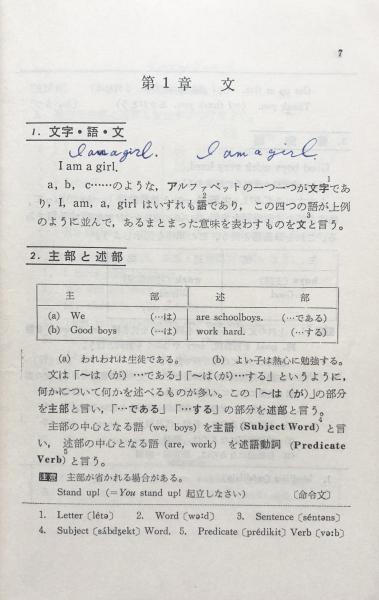 7
第1章 文
1. 文字・語・文
I am a girl. I am a girl.
I am a girl.
a, b, c……のような, アルファベットの一つ一つが文字1であ
り, I, am, a, girl はいずれも語2であり, この四つの語が上例
のように並んで, あるまとまった意味を表わすものを文3と言う。
2. 主部と述部
主 部 述 部
(a) We (…は) are schoolboys. (…である)
(b) Good boys (…は) work hard. (…する)
(a) われわれは生徒である。 (b) よい子は熱心に勉強する。
文は「〜は (が) …である」「〜は(が)…する」というように,
何かについて何かを述べるものが多い。この「〜は (が)」の部分
を主部と言い,「…である」「…する」の部分を述部と言う。
主部の中心となる語 (we, boys) を主語 (Subject Word)4 と言
い, 述部の中心となる語 (are, work) を述語動詞 (Predicate
Verb)5 と言う。
注意 主部が省かれる場合がある。
Stand up! (=You stand up! 起立しなさい) 〔命令文〕
1. Letter〔létə〕 2. Word〔wə:d〕 3. Sentence〔séntəns〕
4. Subject〔sʌ́bdʒekt〕Word. 5. Predicate〔prédikit〕Verb〔və:b〕